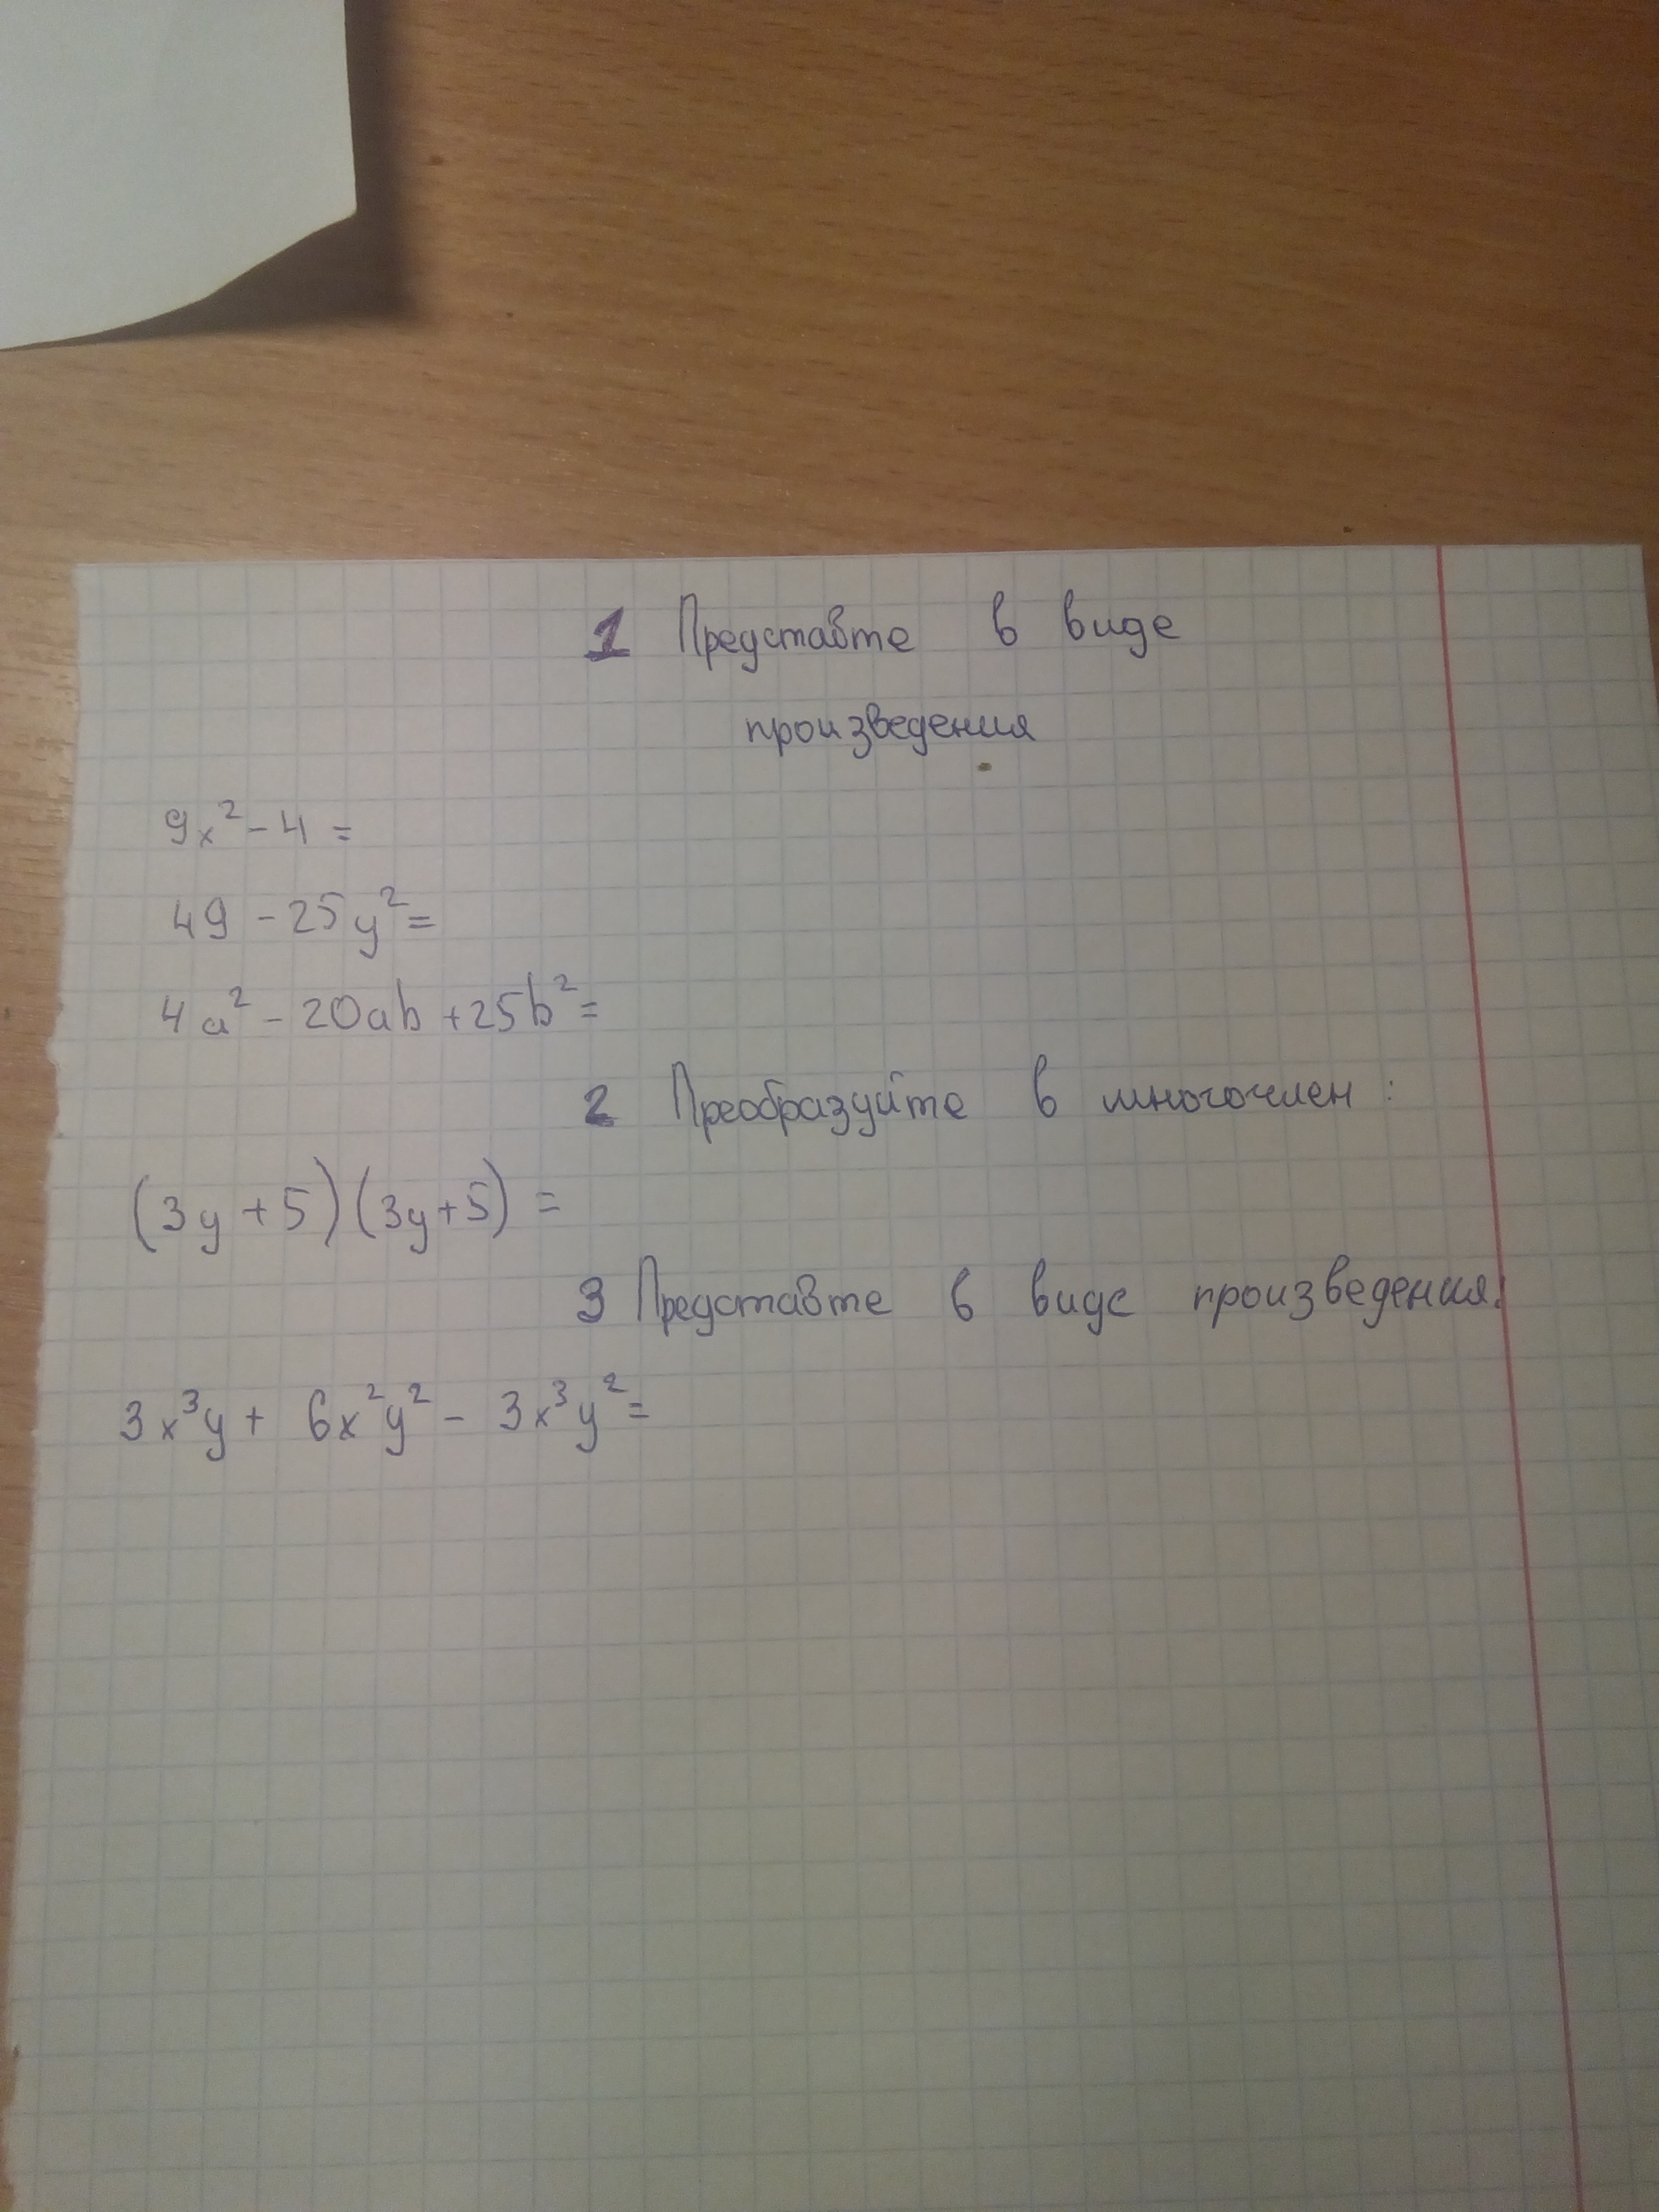 1 Представте в виде
произведения
9x² - 4 =
49 - 25y² =
4a² - 20ab + 25b² =
2 Преобразуйте в многочлен:
(3y + 5)(3y + 5) =
3 Представте в виде произведения:
3x³y + 6x²y² - 3x³y² =